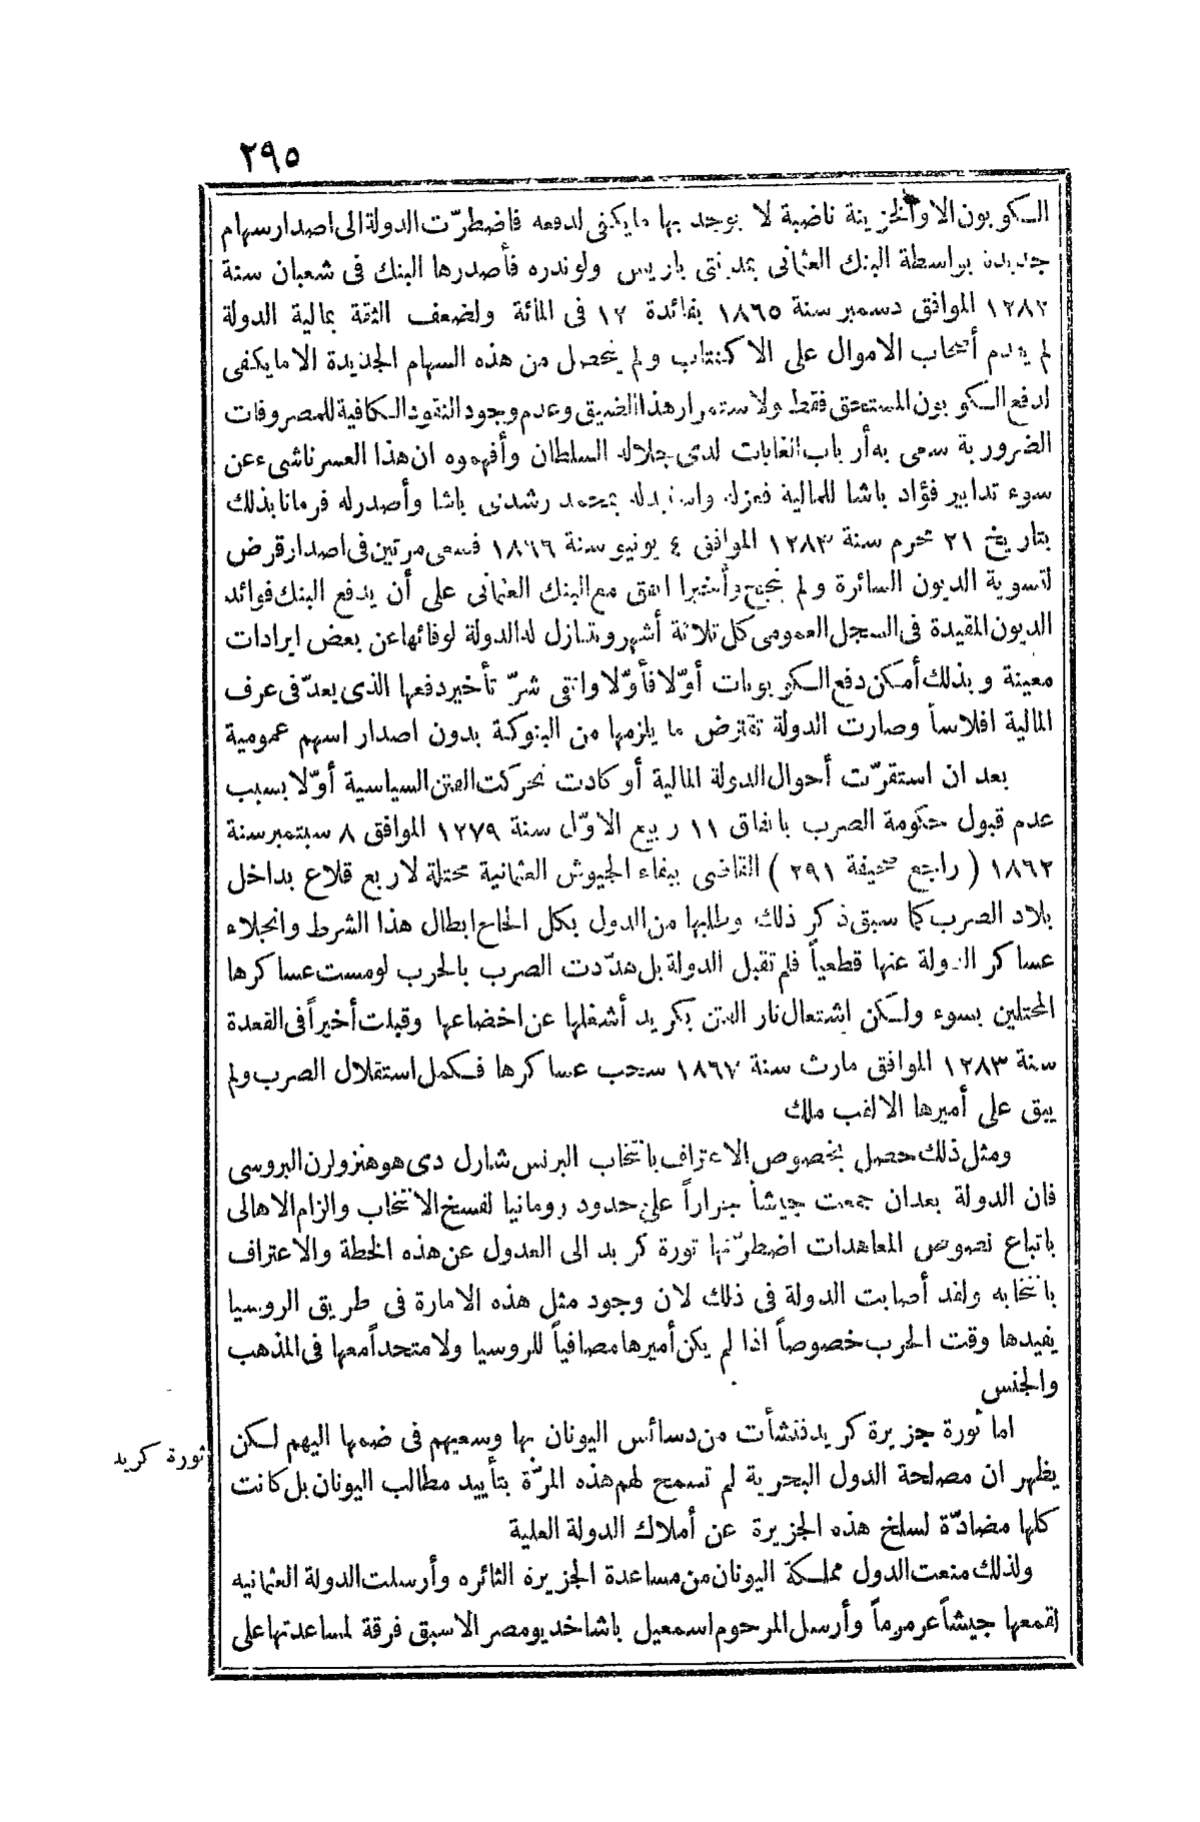 ٢٩٥
الكوبون الا والخزينة ناضبة لا يوجد بها ما يكفى لدفعه فاضطرّت الدولة الى اصدار سهام
جديدة بواسطة البنك العثمانى بمدينتى باريس ولوندره فأصدرها البنك فى شعبان سنة
١٢٨٢ الموافق دسمبر سنة ١٨٦٥ بفائدة ١٢ فى المائة ولضعف الثقة بمالية الدولة
لم يقدم أصحاب الاموال على الاكتتاب ولم يتحصل من هذه السهام الجديدة الا ما يكفى
لدفع الكوبون المستحق فقط ولاستمرار هذا الضيق وعدم وجود النقود الكافية للمصروفات
الضرورية سعى به أرباب الغايات لدى جلالة السلطان وأفهموه ان هذا العسر ناشىء عن
سوء تدابير فؤاد باشا للمالية فعزله واستبدله بمحمد رشدى باشا وأصدر له فرمانا بذلك
بتاريخ ٢١ محرم سنة ١٢٨٣ الموافق ٤ يونيو سنة ١٨٦٦ فسعى مرتين فى اصدار قرض
لتسوية الديون السائرة ولم ينجح وأخيرا اتفق مع البنك العثمانى على أن يدفع البنك فوائد
الديون المقيدة فى السجل العمومى كل ثلاثة أشهر وتتنازل له الدولة لوفائها عن بعض ايرادات
معينة وبذلك أمكن دفع الكوبونات أوّلا فأوّلا واتقى شرّ تأخير دفعها الذى يعدّ فى عرف
المالية افلاساً وصارت الدولة تقترض ما يلزمها من البنوكة بدون اصدار اسهم عمومية
بعد ان استقرّت أحوال الدولة المالية أو كادت تحركت الفتن السياسية أوّلا بسبب
عدم قبول حكومة الصرب باتفاق ١١ ربيع الاوّل سنة ١٢٧٩ الموافق ٨ سبتمبر سنة
١٨٦٢ ( راجع صحيفة ٢٩١ ) القاضى ببقاء الجيوش العثمانية محتلة لاربع قلاع بداخل
بلاد الصرب كما سبق ذكر ذلك وطلبها من الدول بكل الحاح ابطال هذا الشرط وانجلاء
عساكر الدولة عنها قطعياً فلم تقبل الدولة بل هدّدت الصرب بالحرب لو مست عساكرها
المحتلين بسوء ولكن اشتعال نار الفتن بكريد أشغلها عن اخضاعها وقبلت أخيراً فى القعدة
سنة ١٢٨٣ الموافق مارث سنة ١٨٦٧ سحب عساكرها فكمل استقلال الصرب ولم
يبق على أميرها الا لقب ملك
ومثل ذلك حصل بخصوص الاعتراف بانتخاب البرنس شارل دى هوهنزولرن البروسى
فان الدولة بعد ان جمعت جيشاً جراراً على حدود رومانيا لفسخ الانتخاب والزام الاهالى
باتباع نصوص المعاهدات اضطرّتها ثورة كريد الى العدول عن هذه الخطة والاعتراف
بانتخابه ولقد أصابت الدولة فى ذلك لان وجود مثل هذه الامارة فى طريق الروسيا
يفيدها وقت الحرب خصوصاً اذا لم يكن أميرها مصافياً للروسيا ولا متحداً معها فى المذهب
والجنس
اما ثورة جزيرة كريد فنشأت من دسائس اليونان بها وسعيهم فى ضمها اليهم لكن
ثورة كريد
يظهر ان مصلحة الدول البحرية لم تسمح لهم هذه المرّة بتأييد مطالب اليونان بل كانت
كلها مضادّة لسلخ هذه الجزيرة عن أملاك الدولة العلية
ولذلك منعت الدول مملكة اليونان من مساعدة الجزيرة الثائره وأرسلت الدولة العثمانيه
لقمعها جيشاً عرمرماً وأرسل المرحوم اسمعيل باشا خديو مصر الاسبق فرقة لمساعدتها على